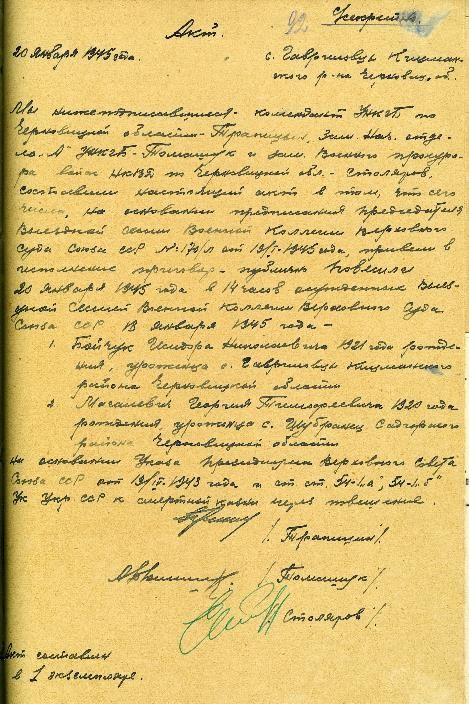 92. Секретно.
Акт.
20 января 1945 года. с. Гавриловцы Кицман-
ского р-на Черновиц. об.
Мы нижеподписавшиеся - комендант УНКГБ по
Черновицкой области - Трапицын, зам. нач. отде-
ла "А" УНКГБ - Томащук и зам. Военного прокуро-
ра войск НКВД по Черновицкой обл. - Столяров,
составили настоящий акт в том, что сего
числа, на основании предписания председателя
Выездной сессии Военной Коллегии Верховного
Суда Союза ССР от 19/I-1945 года, привели в
исполнение приговор - публично повесили
20 января 1945 года в 14 часов осужденных Выез-
дной Сессией Военной Коллегии Верховного Суда
Союза ССР 18 января 1945 года -
1. Бойчук Исидора Николаевича 1921 года рожде-
ния, уроженца с. Гавриловцы Кицманского
района Черновицкой области
2. Георгия Тимофеевича 1920 года
рождения, уроженца с. Садгорского
района Черновицкой области
на основании Указа Президиума Верховного Совета
Союза ССР от 19/IV-1943 года и ст. ст. 54-1 "а", 54-1 "б"
УК УССР к смертной казни через повешение
/Трапицын/.
/Томащук/
/Столяров/.
Акт составлен
в 1 экземпляре.